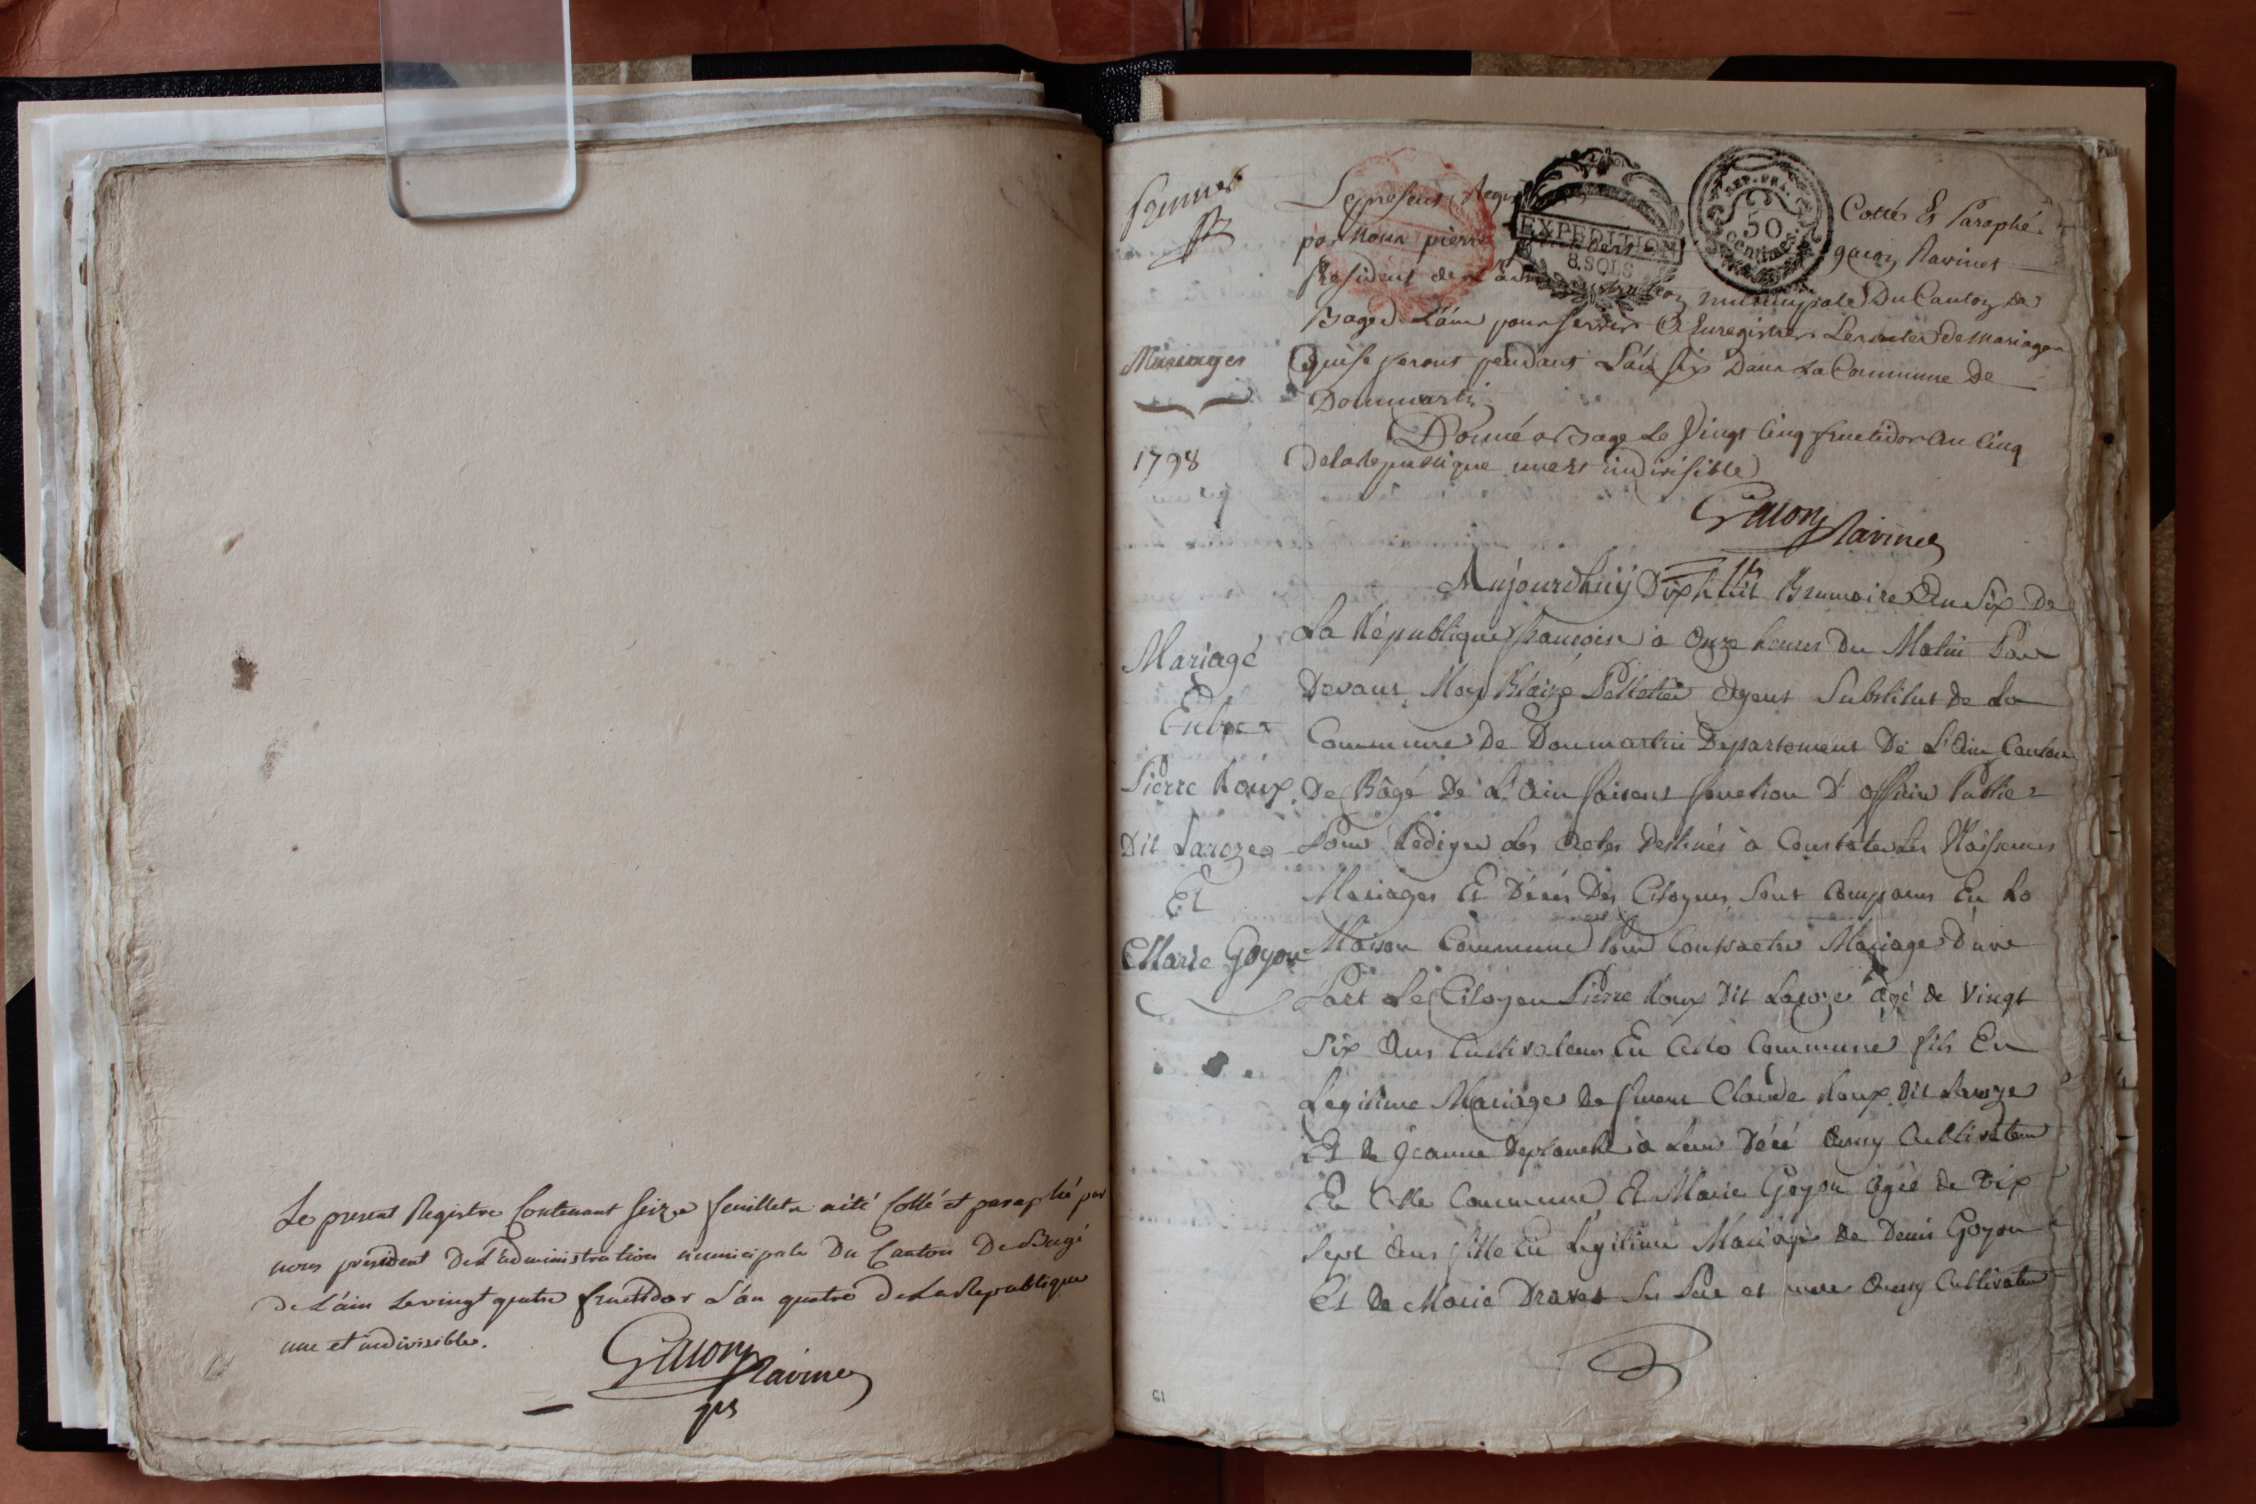 Le present Registre Contenant seize feuillets a été Cotté et paraphé par
nous président de L'administration municipale Du Canton De Bagé
de L'ain Le vingt quatre fructidor L'an quatre de La Republique
une et indivisible.
Gacon Ravinet
Le present Regis
Cottés Et Paraphé
par nous pierre
gacon Ravinet
President de L'adm
tration municipale Du Canton de
Bagé L'ain pour servir a Enregistrer Les actes de mariages
Qui se feront pendant L'an six Dans La Commune De
Dommartin
Donné a Bagé Le Vingt Cinq fructidor an Cinq
De la Republique une et indivisible
Gacon Ravinet
EXPEDITION
8 SOLS
REP. FRA.
50
centimes
Mariages
1798
Mariagé
Entre
Pierre Roux
Dit Laroze
Et
Marie Goyon
Aujourdhuÿ Dix huit Brumaire An Six De
La République francoise à Onze heures Du Matin Par
Devant Moy Blaize Pelletier Agent Substitut de La
Commune De Domartin Departement De L'Ain Canton
De Bâgé De L'Ain faisant fonction D'officier Public
Pour Rediger Les Actes Destinés à Constater Les Naissances
Mariages Et Décés Des Citoyens Sont Comparus En La
Maison Commune Pour Contracter Mariage D'une
Part Le Citoyen Pierre Roux Dit Laroze âgé de Vingt
Six Ans Cultivateur En Cette Commune fils En
Legitime Mariage De Claude Roux Dit Laroze
Et De Jeanne à Leur Décé Cultivateur
En Cette Commune Et Marie Goyon Agée de Dix
Sept Ans fille En Légitime Mariage De Denis Goyon
Et De Marie Dravet Ses Pere et mere Cultivateur